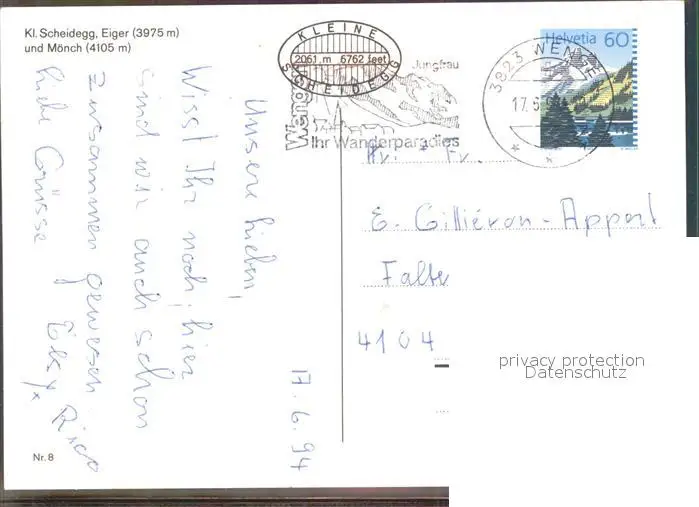 Kl. Scheidegg, Eiger (3975 m)
und Mönch (4105 m)
KLEINE
2061 m 6762 feet
SCHEIDEGG
Jungfrau
Weng
Ihr Wanderparadies
3823 WENGE
17.
Helvetia 60
Unsere Lieben,
Wisst Ihr noch, hier
sind wir auch schon
zusammen gewesen.
Liebe Grüsse
Rico
17.6.94
Hr. + Fr.
E. Gilliéron-Appert
Falte
4104
privacy protection
Datenschutz
Nr. 8